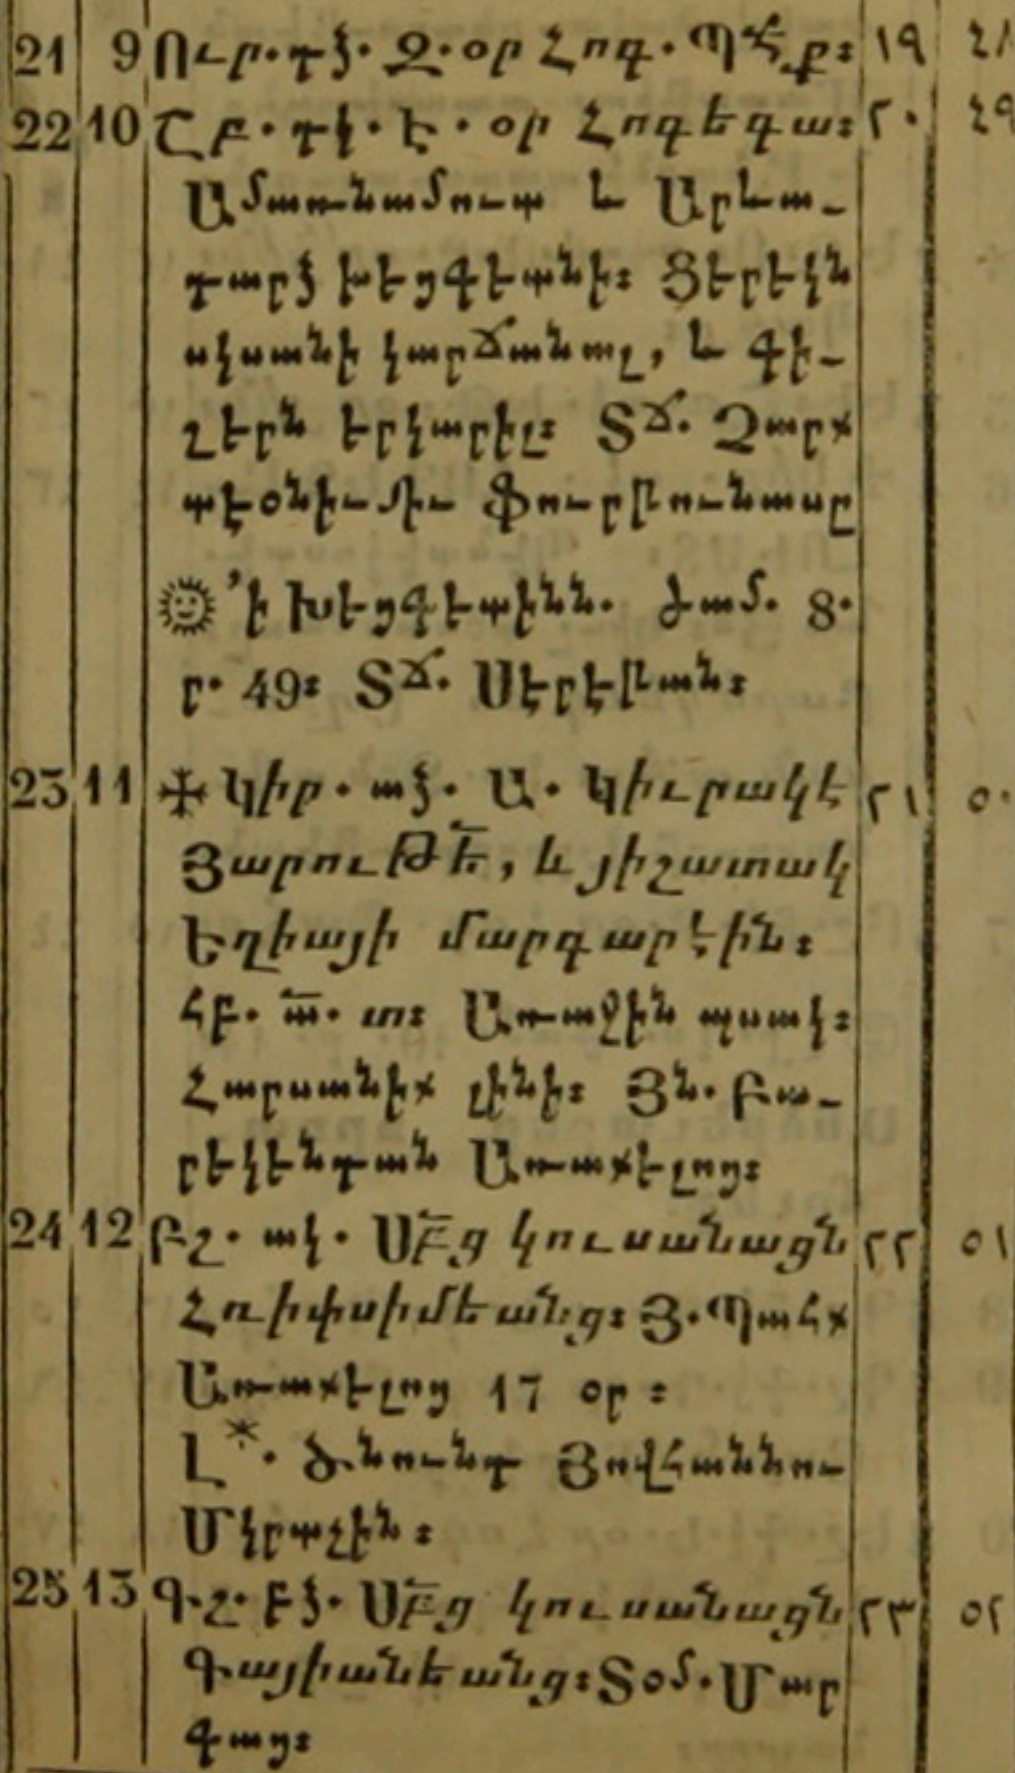 21 9 Ուր. դձ. Զ. օր Հոգ. Պհք։ ١٩ ٤٨
22 10 Շբ. դկ. Է. օր Հոգեգա։ ٢٠ ٤٩
Ամառնամուտ և Արևա-
դարձ խեցգետնի։ Ցերեկն
սկսանի կարճանալ, և գի-
շերն երկարիլ։ ՏՃ. Չարք
☼ ’ի Խեցգետինն. ժամ. 8.
ր. 49։ ՏՃ.
23 11 ✠ Կիր. աձ. Ա. Կիւրակէ ٢١ ٥٠
Յարութե̅, և յիշատակ
Եղիայի մարգարէին։
Հբ. ա̅. տ։ Առաջին պսակ։
Հարսանիք լինի։ Յն. Բա-
րեկենդան Առաքելոց։
24 12 Բշ. ակ. Սբ̅ց կուսանացն ٢٢ ٥١
Հռիփսիմեանց։ Յ. Պահք
Առաքելոց 17 օր։
Լ*. Ծնունդ Յովհաննու
Մկրտչին։
25 13 Գշ. բձ. Սբ̅ց կուսանացն ٢٣ ٥٢
Գայիանեանց։ Տօմ. Մար
գաց։